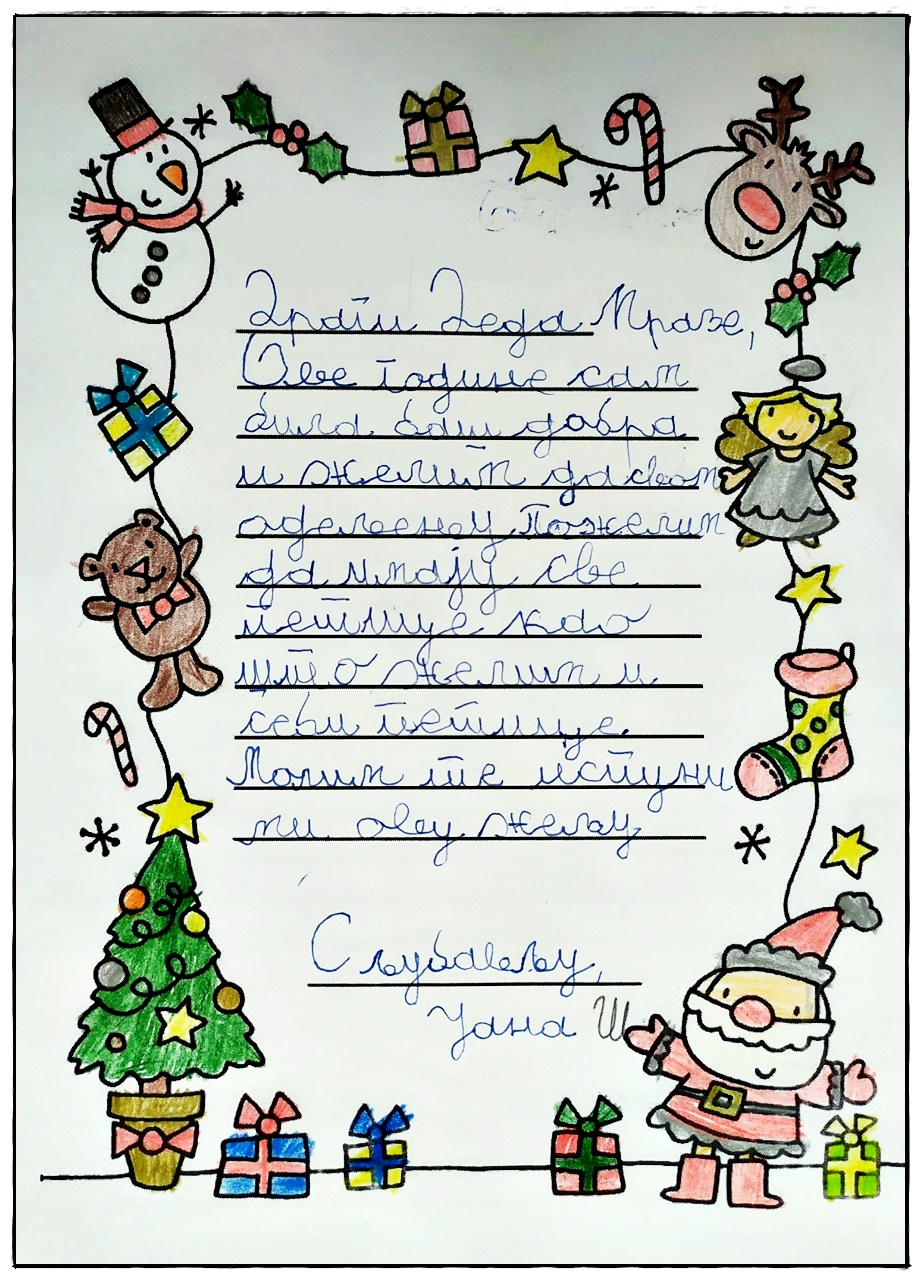 Драги Деда Мразе,
Ове године сам
била баш добра
и желим да свом
одељењу Пожелим
да имају све
петице као
што желим и
себи петице.
Молим те испуни
ми ову жељу
С љубављу,
Јана Ш